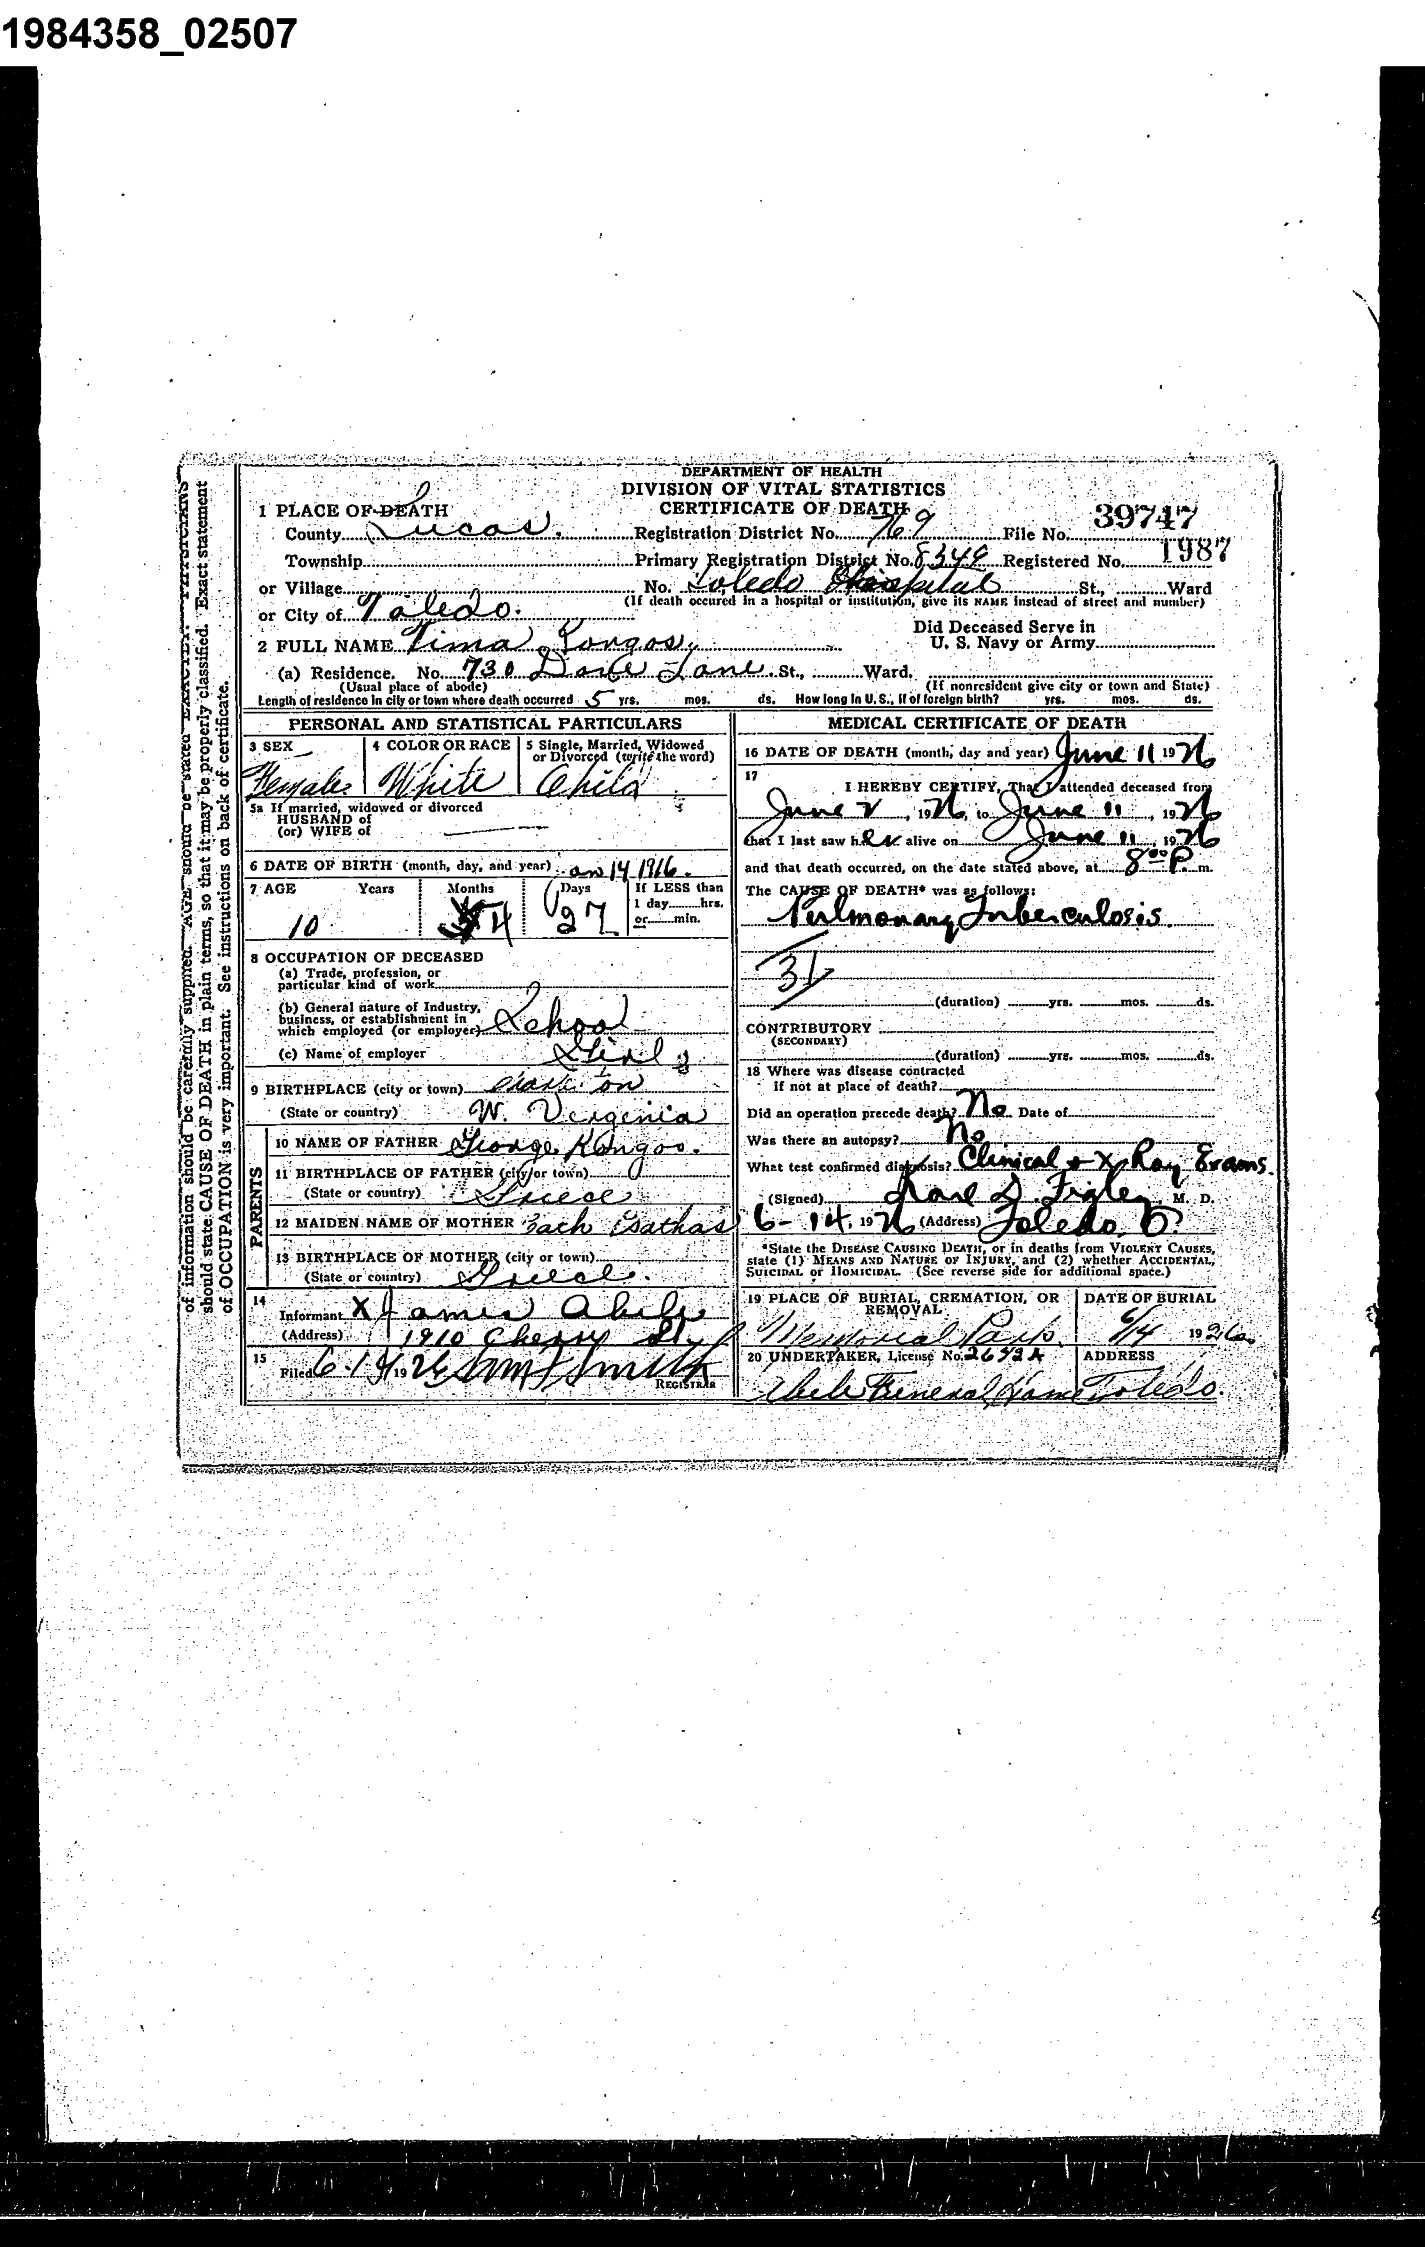 1984358_02507
of information should be carefully supplied. AGE should be stated EXACTLY. PHYSICIANS
should state CAUSE OF DEATH in plain terms, so that it may be properly classified. Exact statement
of OCCUPATION is very important. See instructions on back of certificate.
DEPARTMENT OF HEALTH
DIVISION OF VITAL STATISTICS
CERTIFICATE OF DEATH
1 PLACE OF DEATH
County Lucas. Registration District No. 769 File No. 39747
Township Primary Registration District No. 8349 Registered No. 1987
or Village No. Toledo Hospital St., Ward
(If death occured in a hospital or institution, give its NAME instead of street and number)
or City of Toledo.
Did Deceased Serve in
U. S. Navy or Army
2 FULL NAME Kongos
(a) Residence. No. 730 Lane St., Ward.
(Usual place of abode) (If nonresident give city or town and State)
Length of residence in city or town where death occurred 5 yrs. mos. ds. How long in U. S., if of foreign birth? yrs. mos. ds.
PERSONAL AND STATISTICAL PARTICULARS
3 SEX 4 COLOR OR RACE 5 Single, Married, Widowed
or Divorced (write the word)
Female White Child
5a If married, widowed or divorced
HUSBAND of
(or) WIFE of
6 DATE OF BIRTH (month, day, and year) Jan 14 1916.
7 AGE Years Months Days If LESS than
1 day hrs.
or min.
10 4 27
8 OCCUPATION OF DECEASED
(a) Trade, profession, or
particular kind of work
(b) General nature of Industry,
business, or establishment in
which employed (or employer) School
(c) Name of employer Girl
9 BIRTHPLACE (city or town)
(State or country) W. Verginia
PARENTS
10 NAME OF FATHER George Kongos.
11 BIRTHPLACE OF FATHER (city or town)
(State or country) Greece
12 MAIDEN NAME OF MOTHER Psathas
13 BIRTHPLACE OF MOTHER (city or town)
(State or country) Greece.
14
Informant X James Abele
(Address) 1910 Cherry St
15
Filed 6-14 1926 Smith
REGISTRAR
MEDICAL CERTIFICATE OF DEATH
16 DATE OF DEATH (month, day and year) June 11 1926
17
I HEREBY CERTIFY, That I attended deceased from
June 2, 1926, to June 11, 1926
that I last saw her alive on June 11, 1926
and that death occurred, on the date stated above, at 8 00 P. m.
The CAUSE OF DEATH* was as follows:
Pulmonary Tuberculosis
31
(duration) yrs. mos. ds.
CONTRIBUTORY
(SECONDARY)
(duration) yrs. mos. ds.
18 Where was disease contracted
if not at place of death?
Did an operation precede death? No Date of
Was there an autopsy? No
What test confirmed diagnosis? Clinical + X Ray Exams.
(Signed) Karl D. Figley, M. D.
6-14, 1926 (Address) Toledo, O.
*State the DISEASE CAUSING DEATH, or in deaths from VIOLENT CAUSES,
state (1) MEANS AND NATURE OF INJURY, and (2) whether ACCIDENTAL,
SUICIDAL or HOMICIDAL. (See reverse side for additional space.)
19 PLACE OF BURIAL, CREMATION, OR
REMOVAL DATE OF BURIAL
Memorial Park. 6/14 1926
20 UNDERTAKER, License No. 2642A ADDRESS
Abele Funeral Home Toledo.